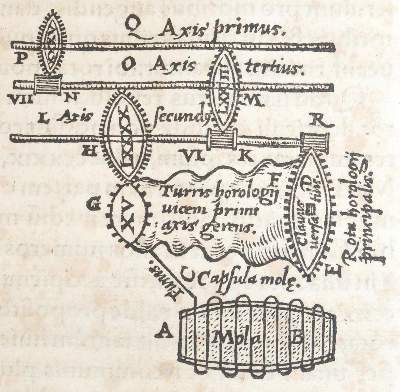 Q Axis primus.
P
O Axis tertius.
VII N
M
L Axis secundꝰ
H XXXX
VI K
R
Turris horologij
vicem primi
axis gerens.
F
G XV
Clauis
Rota horologij
principalis.
E
I
Funis
C Capsula molę.
A Mola B